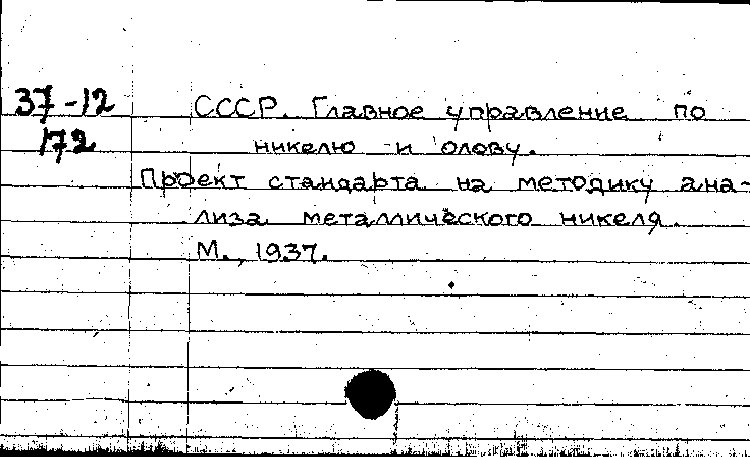 37-12
172
СССР. Главное управление по
никелю и олову.
Проект стандарта на методику ана-
лиза металлического никеля.
М., 1937.